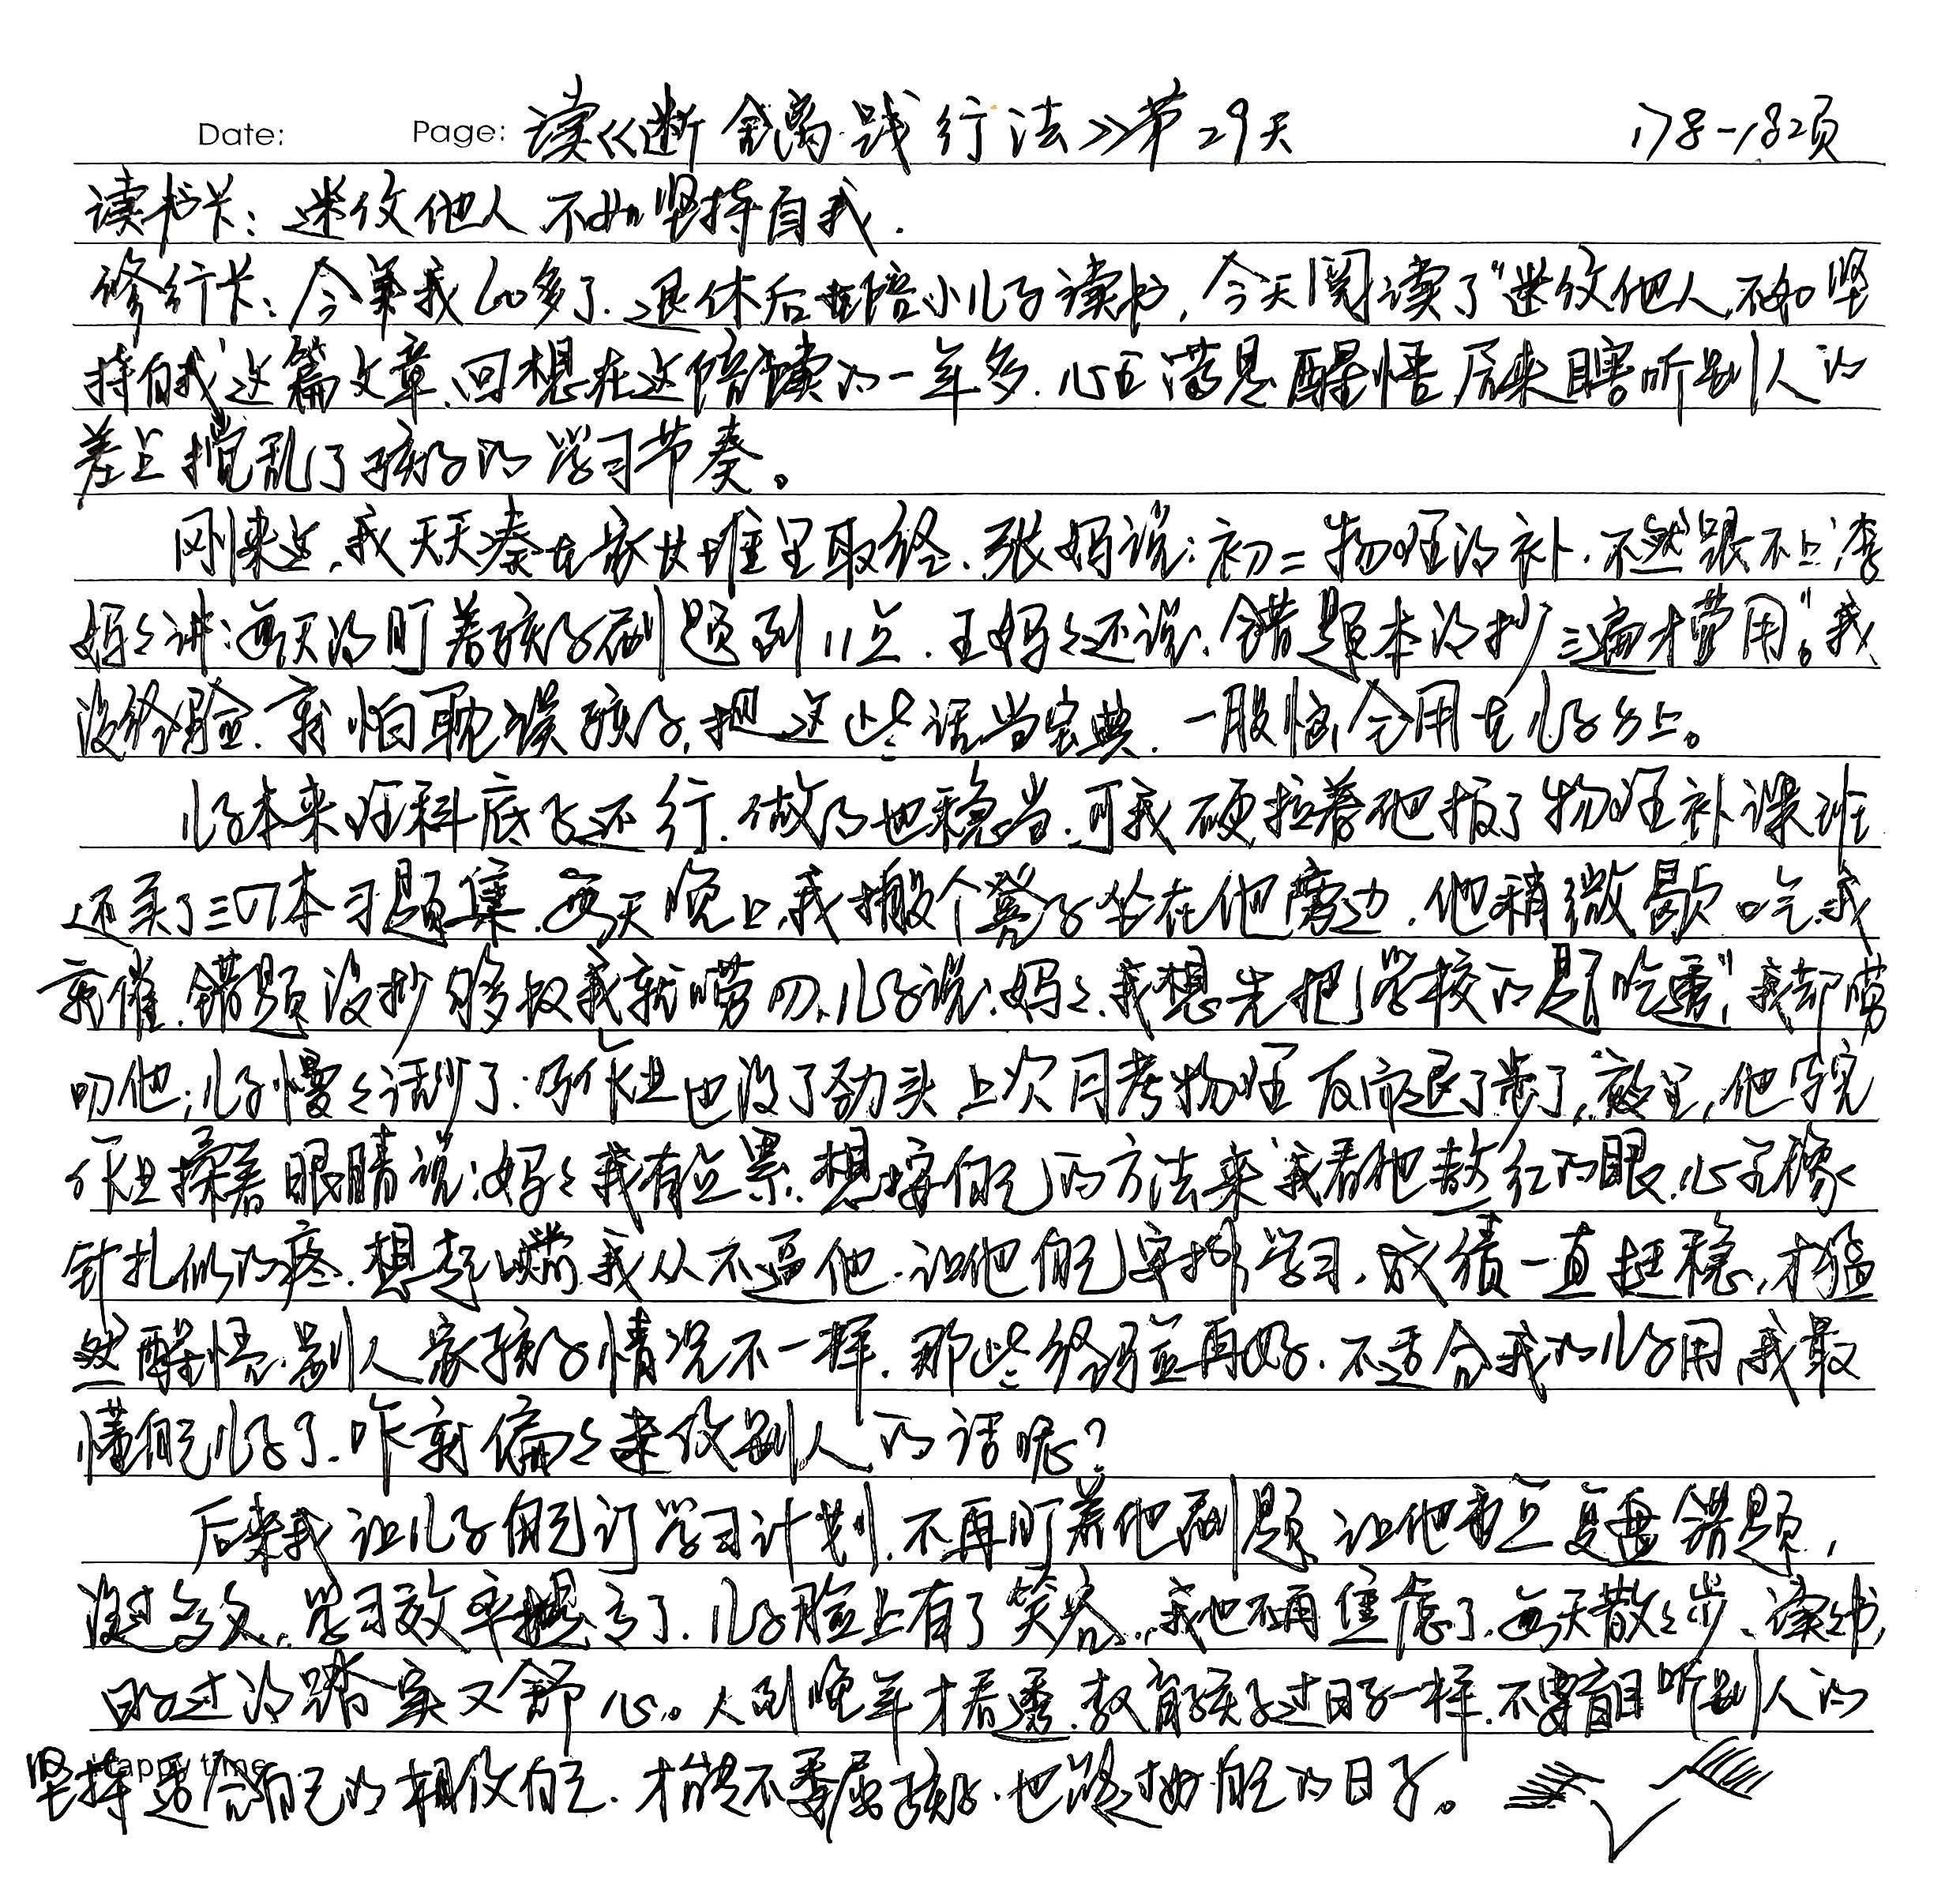 Date: Page: 读《断舍离践行法》第29天 178-182页
读书卡：迷信他人不如坚持自我.
修行卡：今年我60多了.退休后陪小儿子读书，今天阅读了"迷信他人,不如坚
持自我"这篇文章、回想在这陪读的一年多.心里满是醒悟原来瞎听别人的
差点搅乱了孩子的学习节奏。
刚来这,我天天凑在家长堆里取经、张妈说：初二物理得补.不然跟不上李
妈々讲：每天得盯着孩子刷题到11点.王妈々还说、错题本得抄三遍才管用"。我
没经验.就怕耽误孩子,把这些话当宝典.一股恼全用在儿子身上。
儿子本来理科底子还行.做得也稳当,可我硬拉着他报了物理补课班
还买了三四本习题集.每天晚上,我搬个凳子坐在他旁边.他稍微歇口气我
就催.错题没抄够板我就唠叨,儿子说：妈々、我想先把学校的题吃透",我却唠
叨他；儿子慢々话少了：写作业也没了劲头,上次月考物理反而退了步了,夜里,他写完
作业揉着眼睛说：妈々我有点累.想按自己的方法来"我看他熬红的眼.心里像
针扎似的疼.想起以前我从不逼他.让他自己安排学习,成绩一直挺稳,才猛
然醒悟.别人家孩子情况不一样.那些经验再好.不适合我的儿子用我最
懂自己儿子了.咋就偏々迷信别人的话呢？
后来我让儿子自己订学习计划,不再盯着他刷题,让他重点复盘错题,
没过多久,学习效率提高了.儿子脸上有了笑容,我也不再焦虑了.每天散々步、读々书,
日子过得踏实又舒心。人到晚年才看透.教育孩子过日子一样.不要盲目听别人的
Happy time
坚持适合自己的相信自己.才能不委屈孩子.也能过好自己的日子。